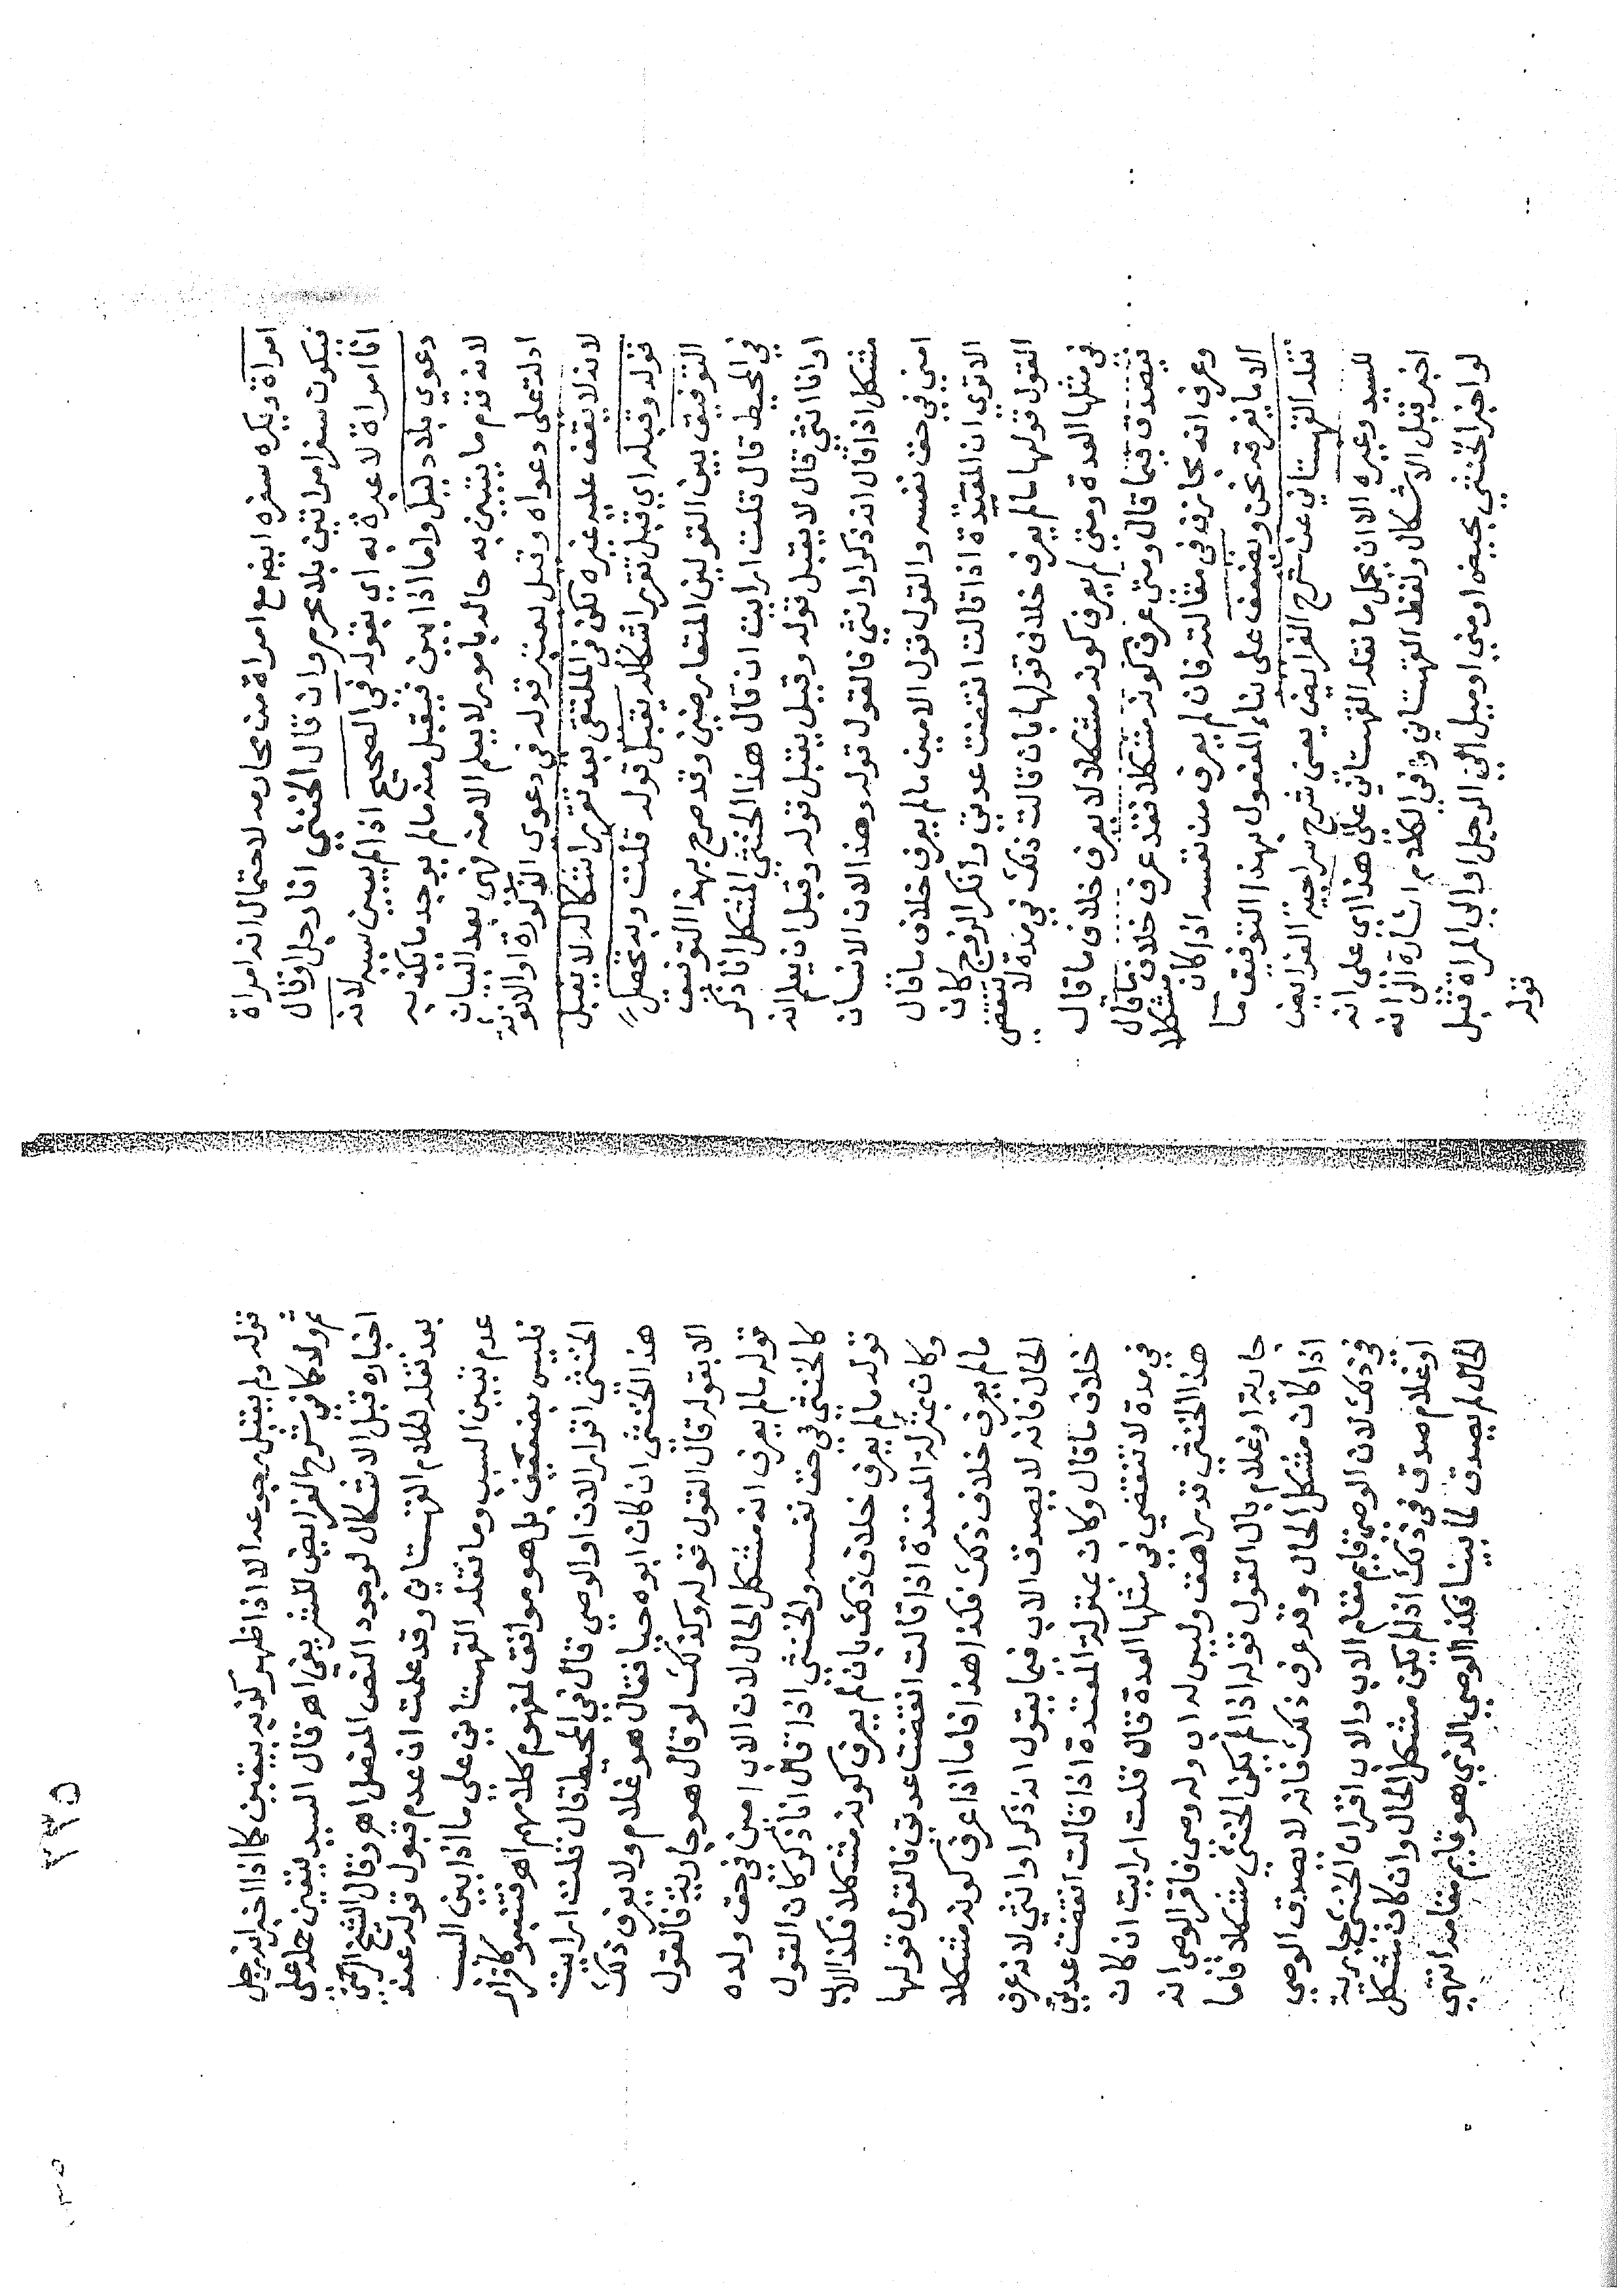 امراة ويكره سفره ايضا مع امراة من محارمه لاحتمال انه امراة
فيكون سفر امراتين بلا محرم وان قال الخنثي انا رجل او قال
انا امراة لا عبرة به اي بقوله في الصحيح اذا لم يتبين سببه لانه
دعوي بلا دليل واما اذا بين فيقبل منه مالم يوجد ما يكذبه
لانه قدم ما يتبين به حاله بامور لا يعلم الا منه فهي بعد البيان
ادلة على دعواه وقيل يعتبر قوله في دعوى الذكورة او الانوثة
لانه لا يقف عليه غيره لكن في الملتقى بعد تقرير اشكاله لا يقبل
قوله وقبله اي قبل تقرير اشكاله يقبل قوله قلت وبه تحصل
التوفيق بين القولين المتعارضين وقد صرح بهذا التوفيق
في المحيط قال قلت ارايت ان قال هذا الخنثي المشكل انا ذكر
او انا انثي قال لا يقبل قوله وقيل يقبل قوله وقيل ان يعلم انه
مشكل اذا قال انه ذكر او انثي فالقول قوله وهذا لان الانسان
امين في حق نفسه والقول قول الامين مالم يعرف خلاف ما قال
الا تري ان المعتدة اذا قالت انقضت عدتي وانكر الزوج كان
القول قولها مالم يعرف خلاف قولها بان قالت ذلك في مدة لا تنقضي
في مثلها العدة ومتي لم يعرف كونه مشكلا لا يعرف خلاف ما قال
فيصدق فيما قال ومتى عرف كونه مشكلا فقد عرف خلاف ما قال
وعرف انه مجازف في مقالته فان لم يعرف من نفسه اذا كان مشكلا
الا ما يعرفه نحن ويضعف على بناء المفعول بهذا التوفيق ما
نقله القهستاني عن شرح الفرايض يعني شرح سراجية الفرايض
للسيد وغيره الا ان يحمل ما نقله القهستاني على هذا اي على انه
اخبر قبل الاشكال ولفظ القهستاني وفي الكلام اشارة الى انه
لو اخبر الخنثي بحيض او مني او ميل الى الرجل او الى المراة تقبل
قوله
قوله ولم يقبل رجوعه الا اذا ظهر كذبه بيقين كما اذا اخبر انه رجل
ثم ولد كما في شرح الفرايض للشريفي اهـ قال السيد يتعين حمله على
اخباره قبل الاشكال لوجود النص المفصل اهـ وقال الشيخ الرحمتي
بعد نقله لكلام القهستاني وقد علمت ان عدم قبول قوله عند
عدم تبين السبب وما نقله القهستاني على ما اذا بين السبب
فليس بضعيف بل هو موافق لمفهوم كلامهم اهـ فتنبه كاقرار
الخنثى اقرار الاب او الوصي قال في المحيط قال قلت ارايت
هذا الخنثى ان كان ابوه حيا فقال هو غلام ولا يعرف ذلك
الا بقوله قال القول قوله وكذلك لو قال هو جارية فالقول
قوله مالم يعرف انه مشكل الحال لان الاب امين في حق ولده
كالخنثي في حق نفسه والخنثي اذا قال انا ذكر كان القول
قوله مالم يعرف خلاف ذلك بان لم يعرف كونه مشكلا فكذا الاب
وكان بمنزلة المعتدة اذا قالت انقضت عدتي فالقول قولها
مالم يعرف خلاف ذلك فكذا هذا فاما اذا عرف كونه مشكلا
الحال فانه لا يصدق الاب فيما يقول انه ذكر او انثي لانه عرف
خلاف ما قال وكان بمنزلة المعتدة اذا قالت انقضت عدتي
في مدة لا تنقضي في مثلها العدة قال قلت ارايت ان كان
هذا الخنثي قد راهق وليس له اب وله وصي فاقر الوصي انه
جارية او غلام بال القول قوله اذا لم يكن الخنثي مشكلا فاما
اذا كان مشكل الحال وقد عرف ذلك فانه لا يصدق الوصي
في ذلك لان الوصي قايم مقام الاب والاب اقر ان الخنثي جارية
او غلام صدق في ذلك اذا لم يكن مشكل الحال وان كان مشكل
الحال لم يصدق لما بينا فكذا الوصي الذي هو قايم مقامه انتهي